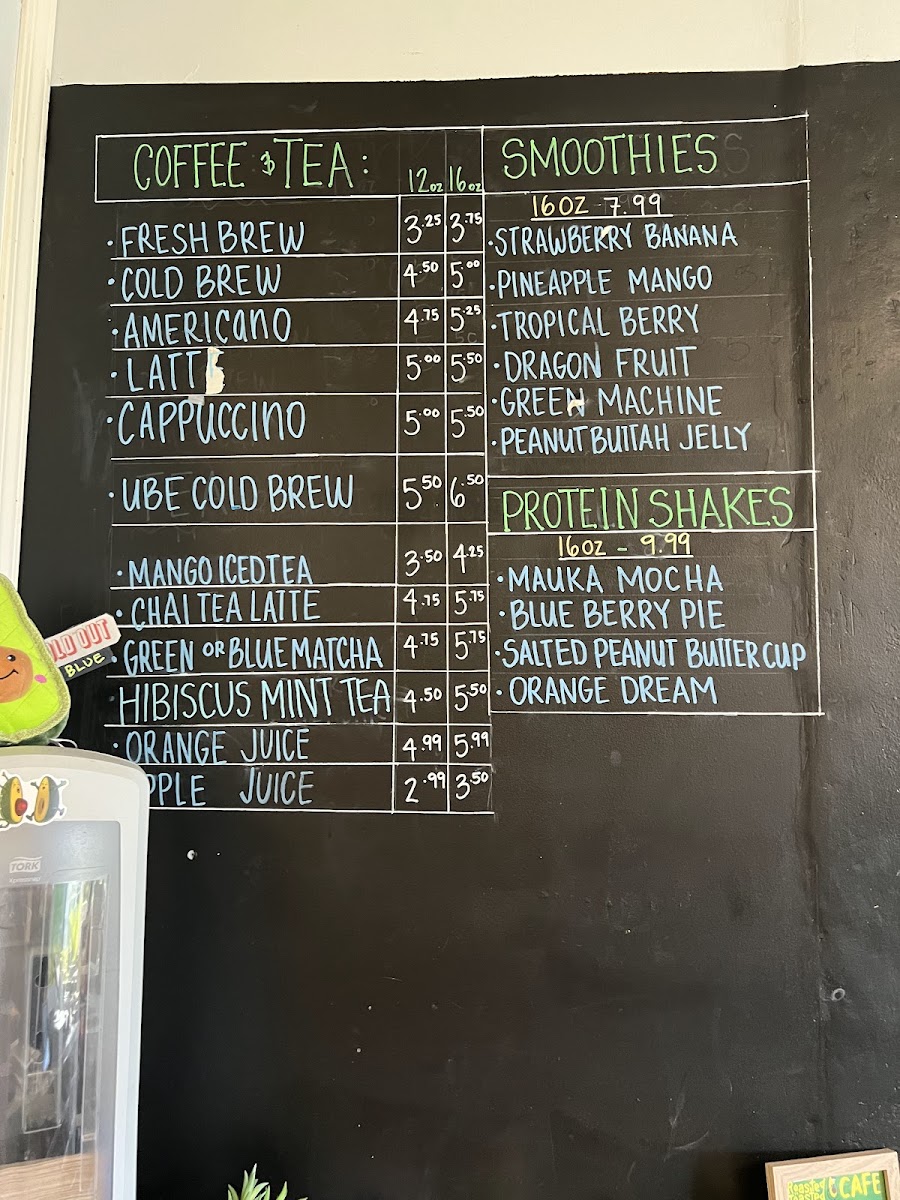 COFFEE & TEA: 12oz 16oz
• FRESH BREW 3.25 3.75
• COLD BREW 4.50 5.00
• AMERICANO 4.75 5.25
• LATTE 5.00 5.50
• CAPPUCCINO 5.00 5.50
• UBE COLD BREW 5.50 6.50
• MANGO ICED TEA 3.50 4.25
• CHAI TEA LATTE 4.75 5.75
• GREEN OR BLUE MATCHA 4.75 5.75
• HIBISCUS MINT TEA 4.50 5.50
• ORANGE JUICE 4.99 5.99
PPLE JUICE 2.99 3.50
SMOOTHIES
16OZ - 7.99
• STRAWBERRY BANANA
• PINEAPPLE MANGO
• TROPICAL BERRY
• DRAGON FRUIT
• GREEN MACHINE
• PEANUT BUTTAH JELLY
PROTEIN SHAKES
16OZ - 9.99
• MAUKA MOCHA
• BLUE BERRY PIE
• SALTED PEANUT BUTTER CUP
• ORANGE DREAM
OLD OUT
BLUE
TORK
CAFE